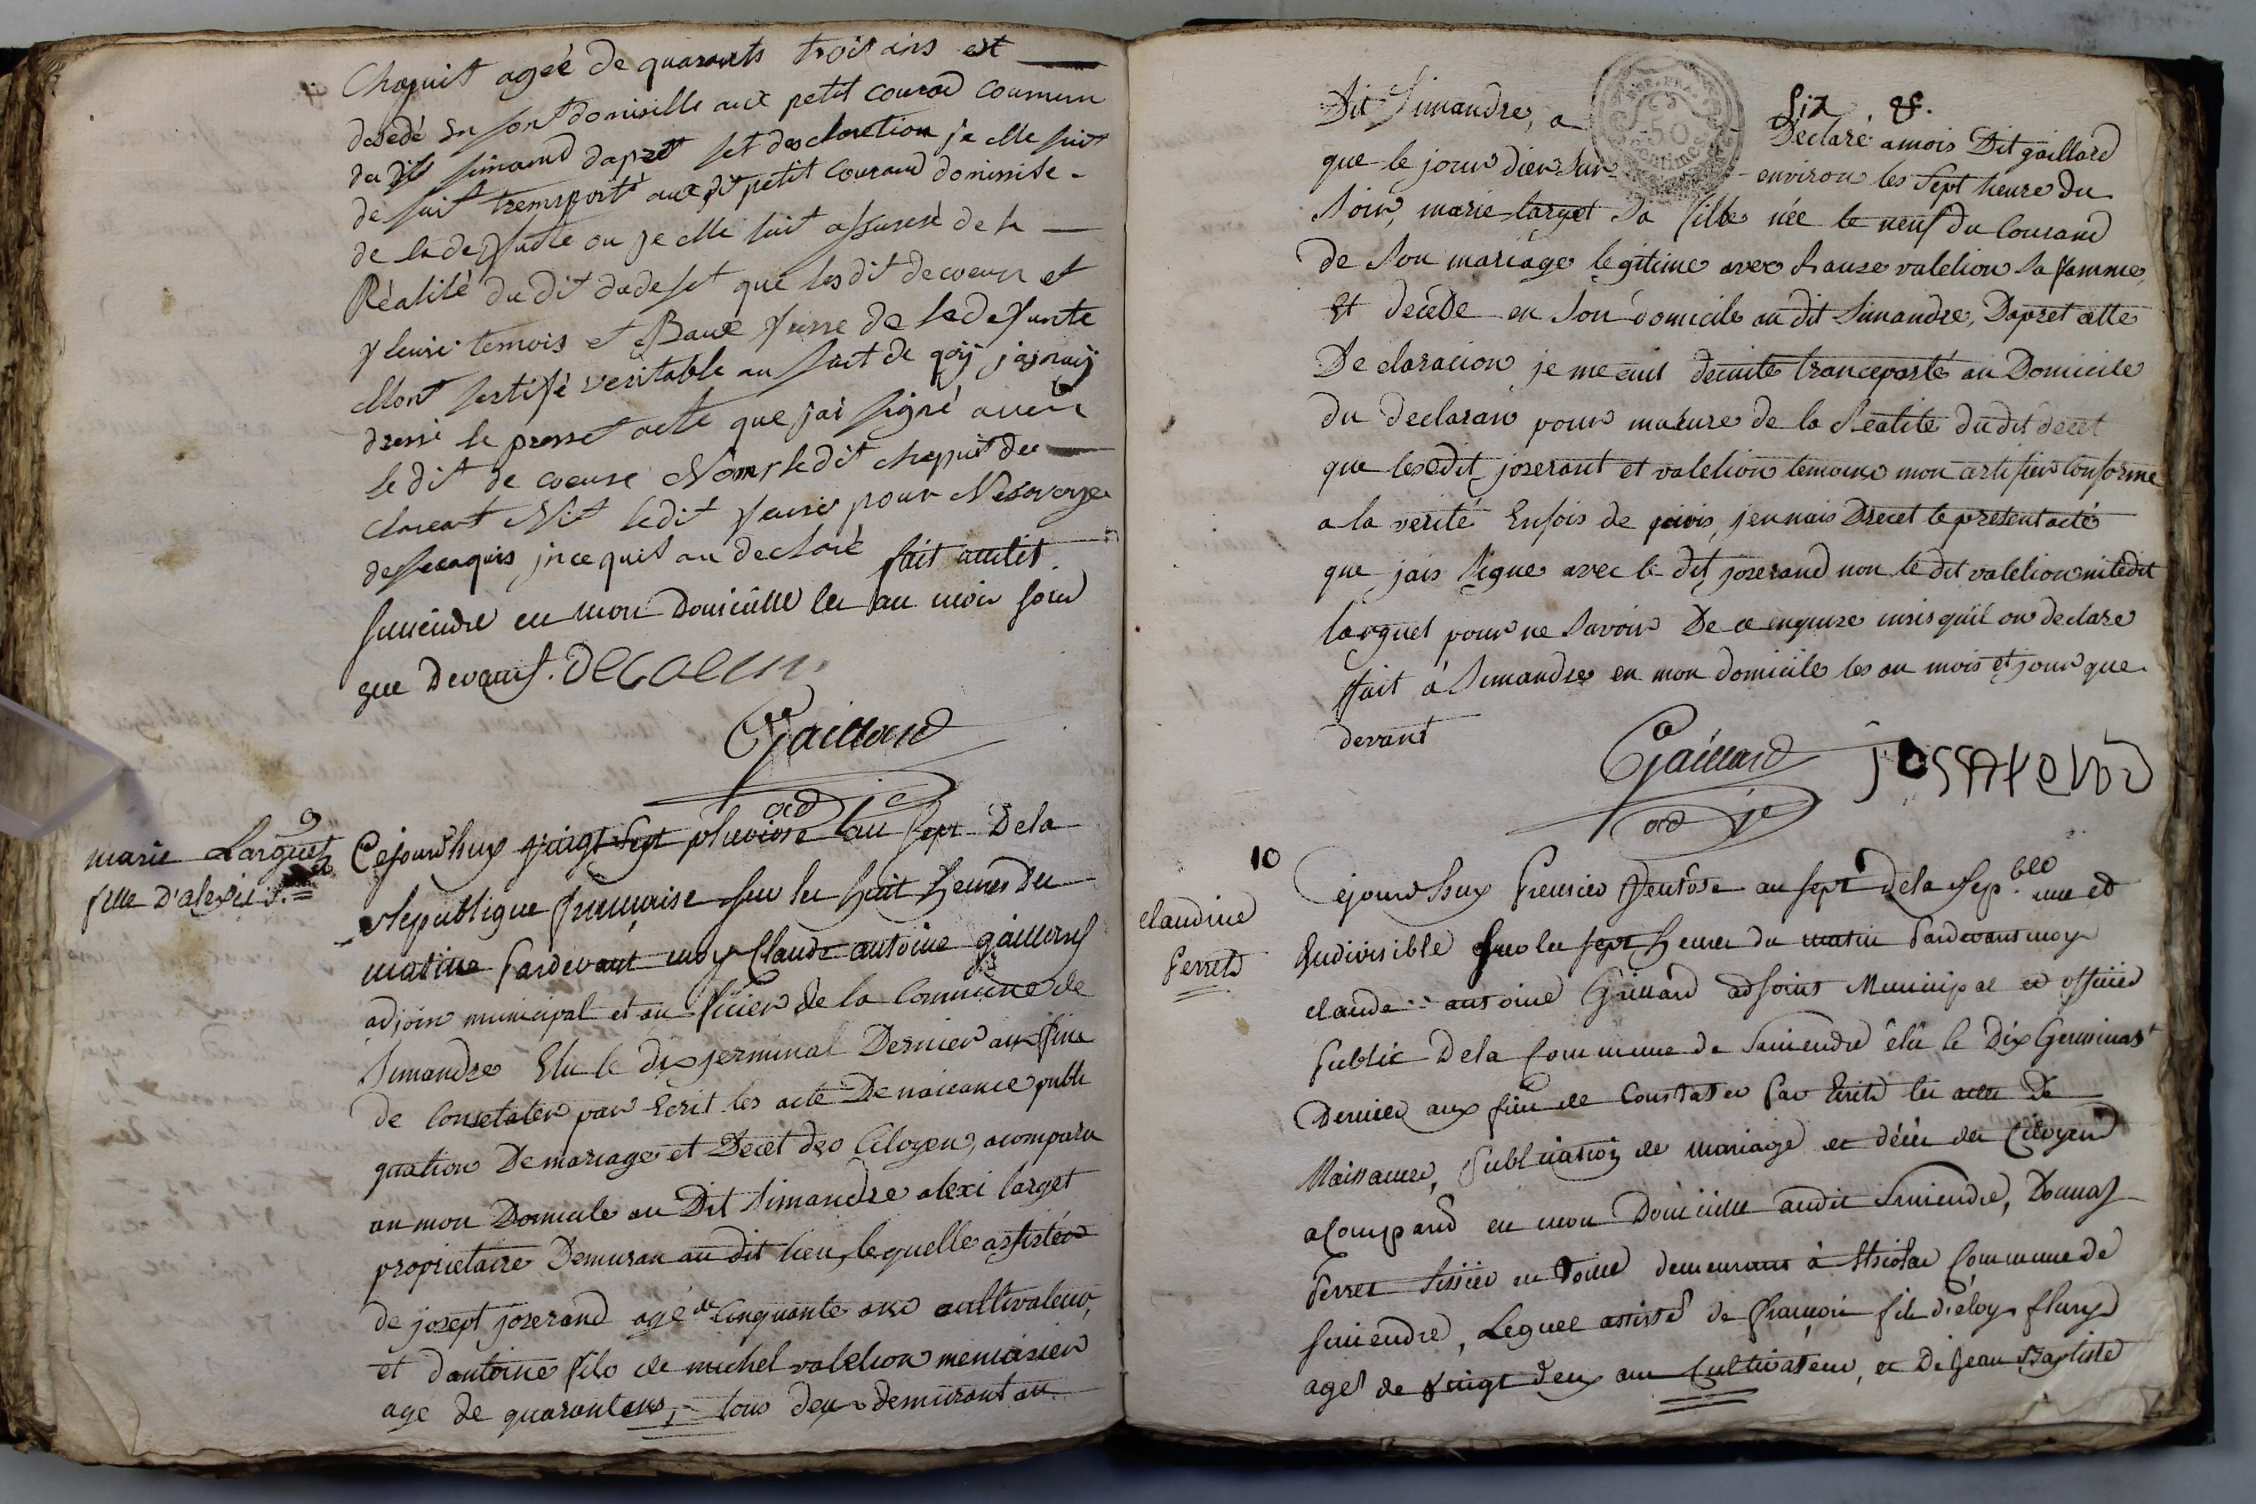 Chapuit ageé de quarante troit ans est
desedé en sont domisille aux petit courad commun
du dit simand dapret set desclaretion je elle suit
de suit tremsporté aux dit petit courand domissile
de ladeffunte ou je elle suit assuresé de la
Réalité du dit dudeset que lesdit decoeur et
temois et Baux frere de ladefunte
Mont sertifé veritable au fait de qoij jajnaij
dressé le presset acte que jai signé avecu
le dit de coeure Nomt ledit chapuit de
clareant Nit ledit pour Nesavoyer
desecaquis jncequil on declaré fait audit
simendre en mon Domicille les an mois jour
que Devant. decoeur
Gaillard
adj
9
marie Larguet
fille D'alexis
Cejourdhuy vingt sept pluviose lan sept Dela
Republique francaise sur les huit heures du
matine Pardevant moy Claude antoine gaillard
adjoin municipal et au ficier de la Commune de
Simandre Elu le dix jerminal Dernier aux fine
de Consetater par Ecrit les acte De naicance publi
quation De mariage et Decet des Citoyen, acomparu
an mon Domicile au Dit Simandre alexi larget
proprietaire Demuran au dit lieu, lequelle assistér
de josept joserand agé de Cinquante ans cultivateur,
et dantoine fils de michel valelion menuisier
age de quarantans, tous deux demurant au
six ff.
Dit Simandre, a Declaré amois Dit gaillard
que le jour dier sur environ les Sept heure du
Soir, marie larget sa fille née le neuf du Courand
de Son mariage legitime avec valelion sa famme,
Et decéde en Son domicile au dit Simandre, Dapret cette
Declaracion je me cuis decuite tranceporté au Domicile
du declaran pour macure de la Realité dudit decet
que lesdit joserant et valelion temoins mon certifier Conforme
a la verité Enfois de quois, jennais Drecet le present acté
que jais Signe avec le dit joserand non le dit valelion nitedit
larguet pour ne Savoir De ce enquire insis quil on declare
ffait à Simandre en mon domicile les an mois et jour que
devant
Gaillard josserand
adj
10
claudine
Perret
Cejourdhuy Premier Ventôse an sept dela Repblq une et
Indivisible sur les sept heures du matin Pardevant moy
claude antoine Gaillard adjoint Municipal et officier
Public Dela Commune de Simendre élû le Dix Germinal
Dernier aux fins de Constater Par Ecrit les actes De
Naissance, Publication de mariage et décés des Citoyens
acomparu en mon Domicille audit Simendre, Donnat
Perret tissier en toile demeurant à Commune de
Simendre, Lequel assisté de françois fils d'éloy flury
agé de Vingt deux ans Cultivateur, et De Jean Baptiste